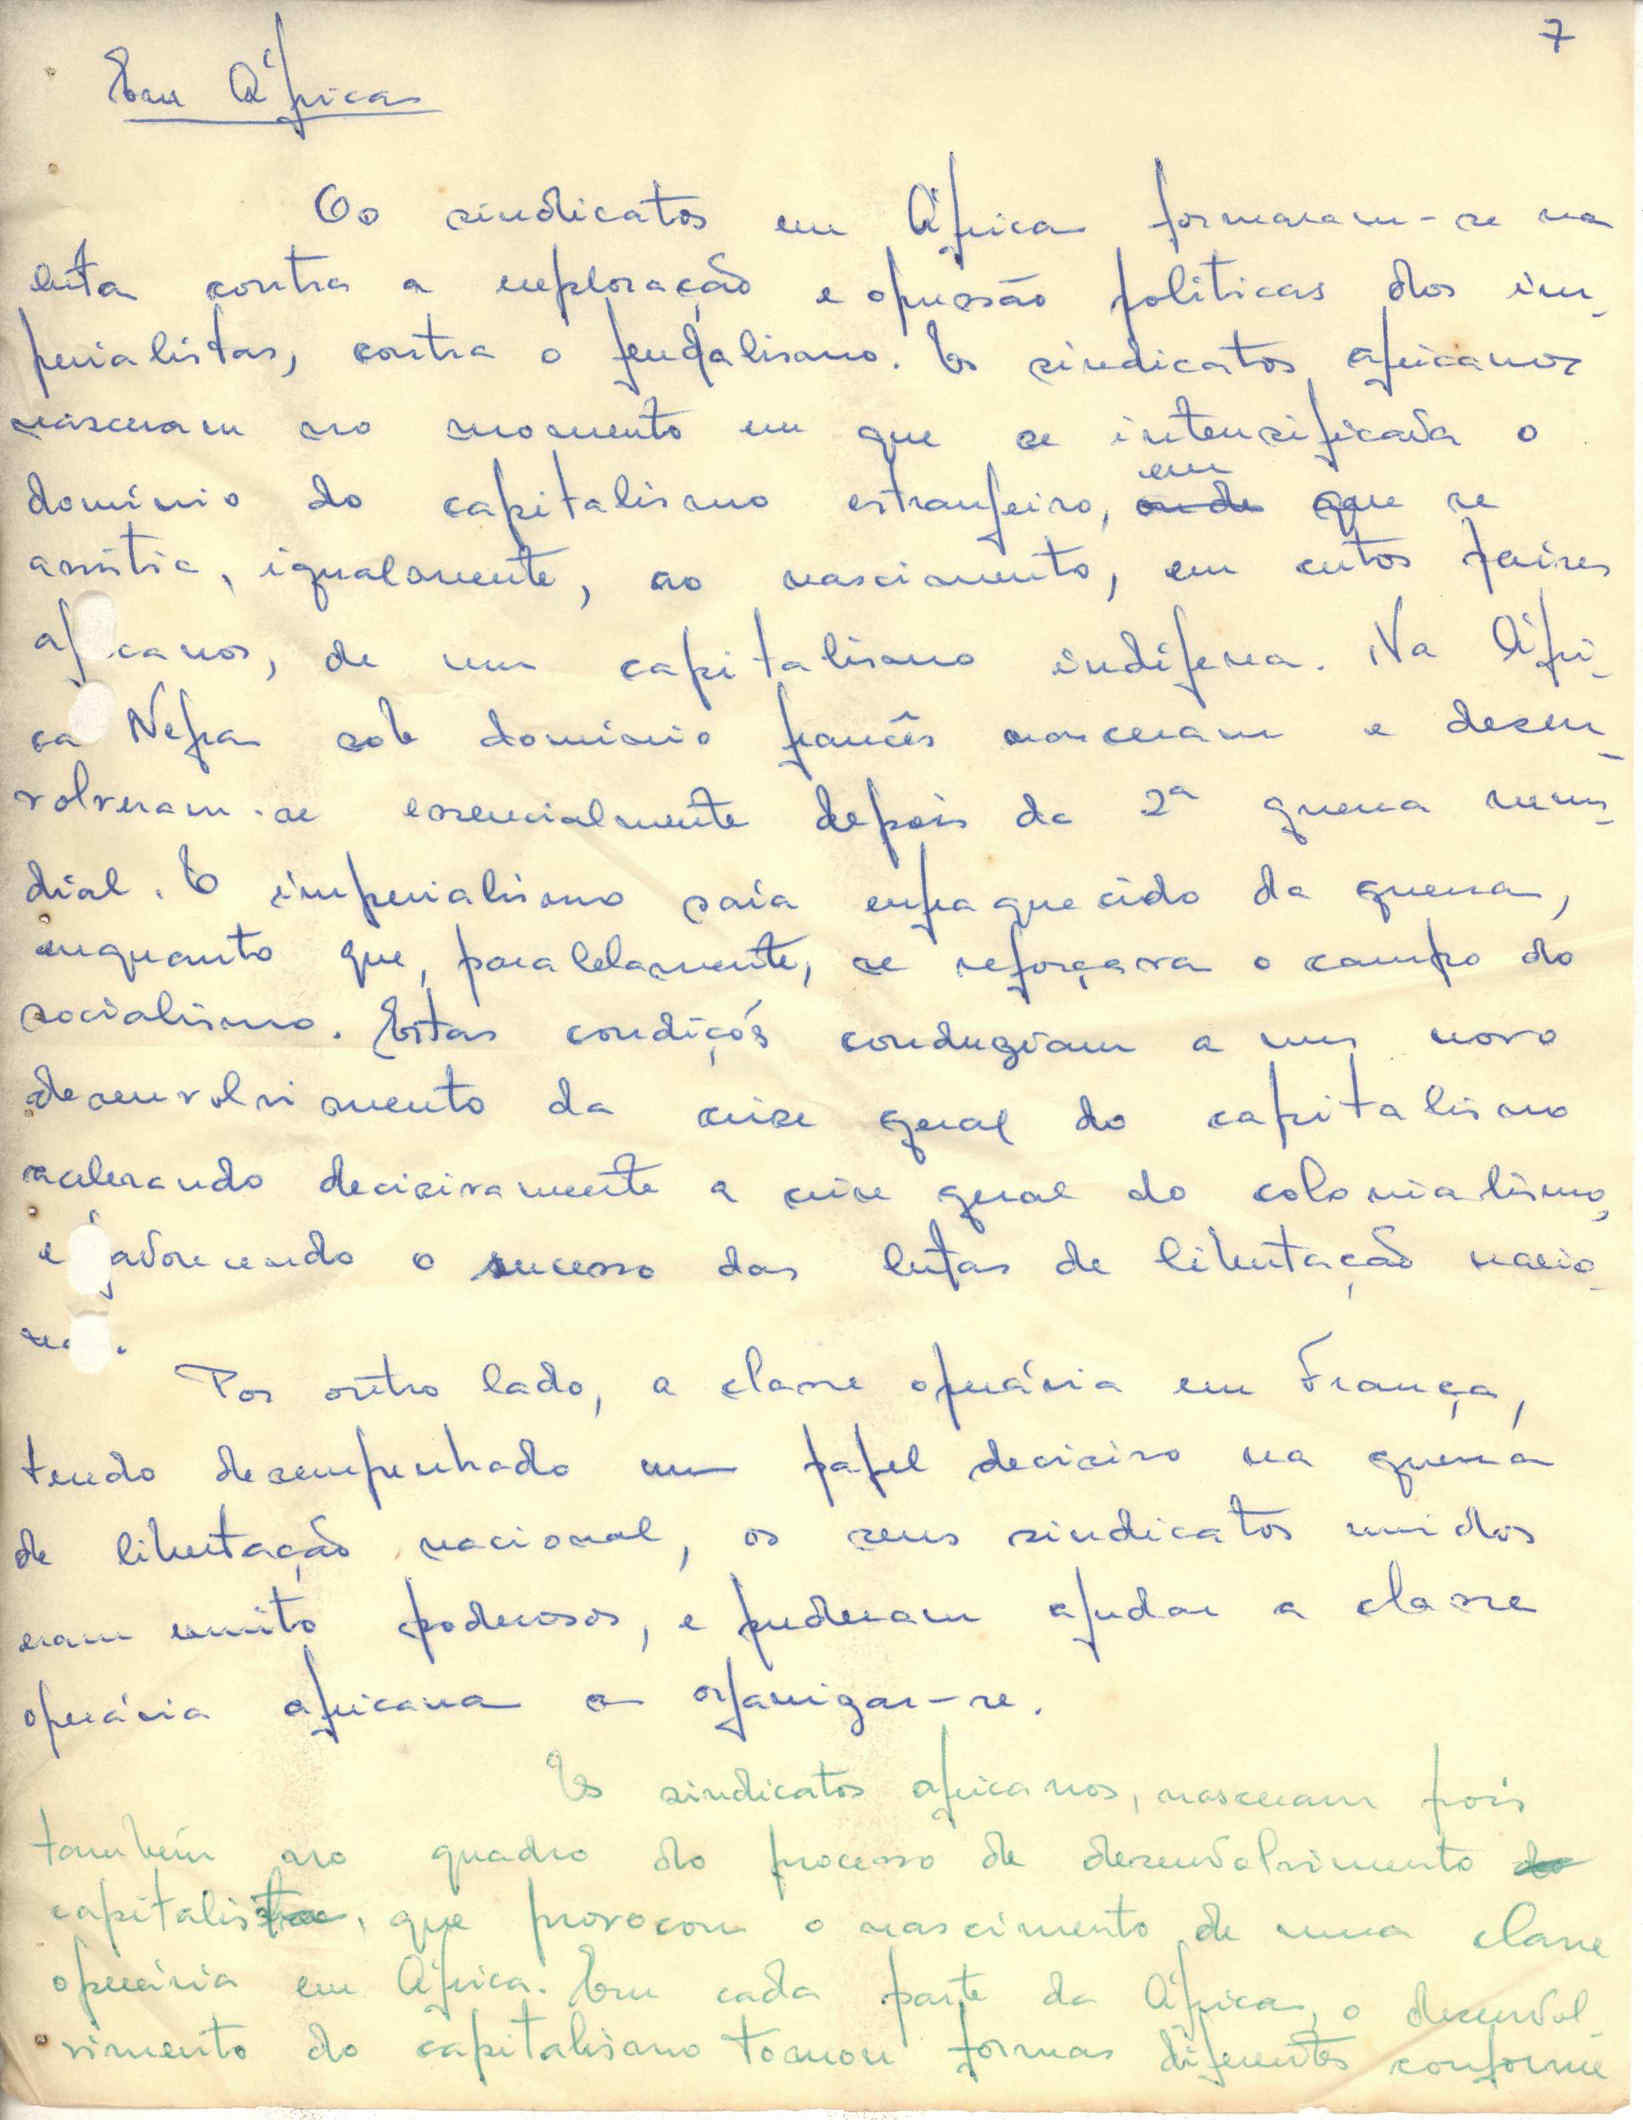 7
Em África
Os sindicatos em África formaram-se na
luta contra a exploração e opressão políticas dos im-
perialistas, contra o feudalismo. Os sindicatos africanos
nasceram no momento em que se intensificava o
domínio do capitalismo estrangeiro, em onde que se
assistia, igualmente, ao nascimento, em certos países
af canos, de um capitalismo indígena. Na Áfri-
ca Negra sob domínio francês nasceram e desen-
volveram-se essencialmente depois da 2ª guerra mun-
dial. O imperialismo saía enfraquecido da guerra,
enquanto que, paralelamente, se reforçava o campo do
socialismo. Estas condições conduziam a um novo
desenvolvimento da crise geral do capitalismo
acelerando decisivamente a crise geral do colonialismo,
e favorecendo o sucesso das lutas de libertação nacio-
na .
Por outro lado, a classe operária em França,
tendo desempenhado um papel decisivo na guerra
de libertação nacional, os seus sindicatos unidos
eram muito poderosos, e puderam ajudar a classe
operária africana a organizar-se.
Os sindicatos africanos, nasceram pois
também no quadro do processo de desenvolvimento do
capitalista, que provocou o nascimento de uma classe
operária em África. Em cada parte da África, o desenvol-
vimento do capitalismo tomou formas diferentes conforme